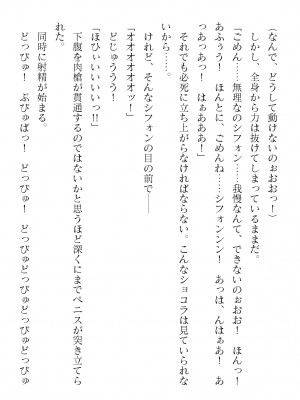 (なんで、どうして動けないのぉおおっ！)
しかし、全身から力は抜けてしまっているままだ。
「ごめん……無理なのシフォン……我慢なんて、できないのぉおお！　ほんっ！
あふぅう！　ほんとに、ごめんね……シフォンンン！　あっは、んはぁぁ！　あ
っあっあっ！　はぁああああ！」
それでも必死に立ち上がらなければならない。こんなショコラは見ていられな
いから……。
けれど、そんなシフォンの目の前で――
「オオオオオオッ！」
どじゅううう！
「ほひぃいいいいいっ!!」
下腹を肉槍が貫通するのではないかと思うほど深くにまでペニスが突き立てら
れた。
同時に射精が始まる。
どっびゅ！　ぶびゅばっ！　どっびゅ！　どっびゅどっびゅどっびゅどっびゅ